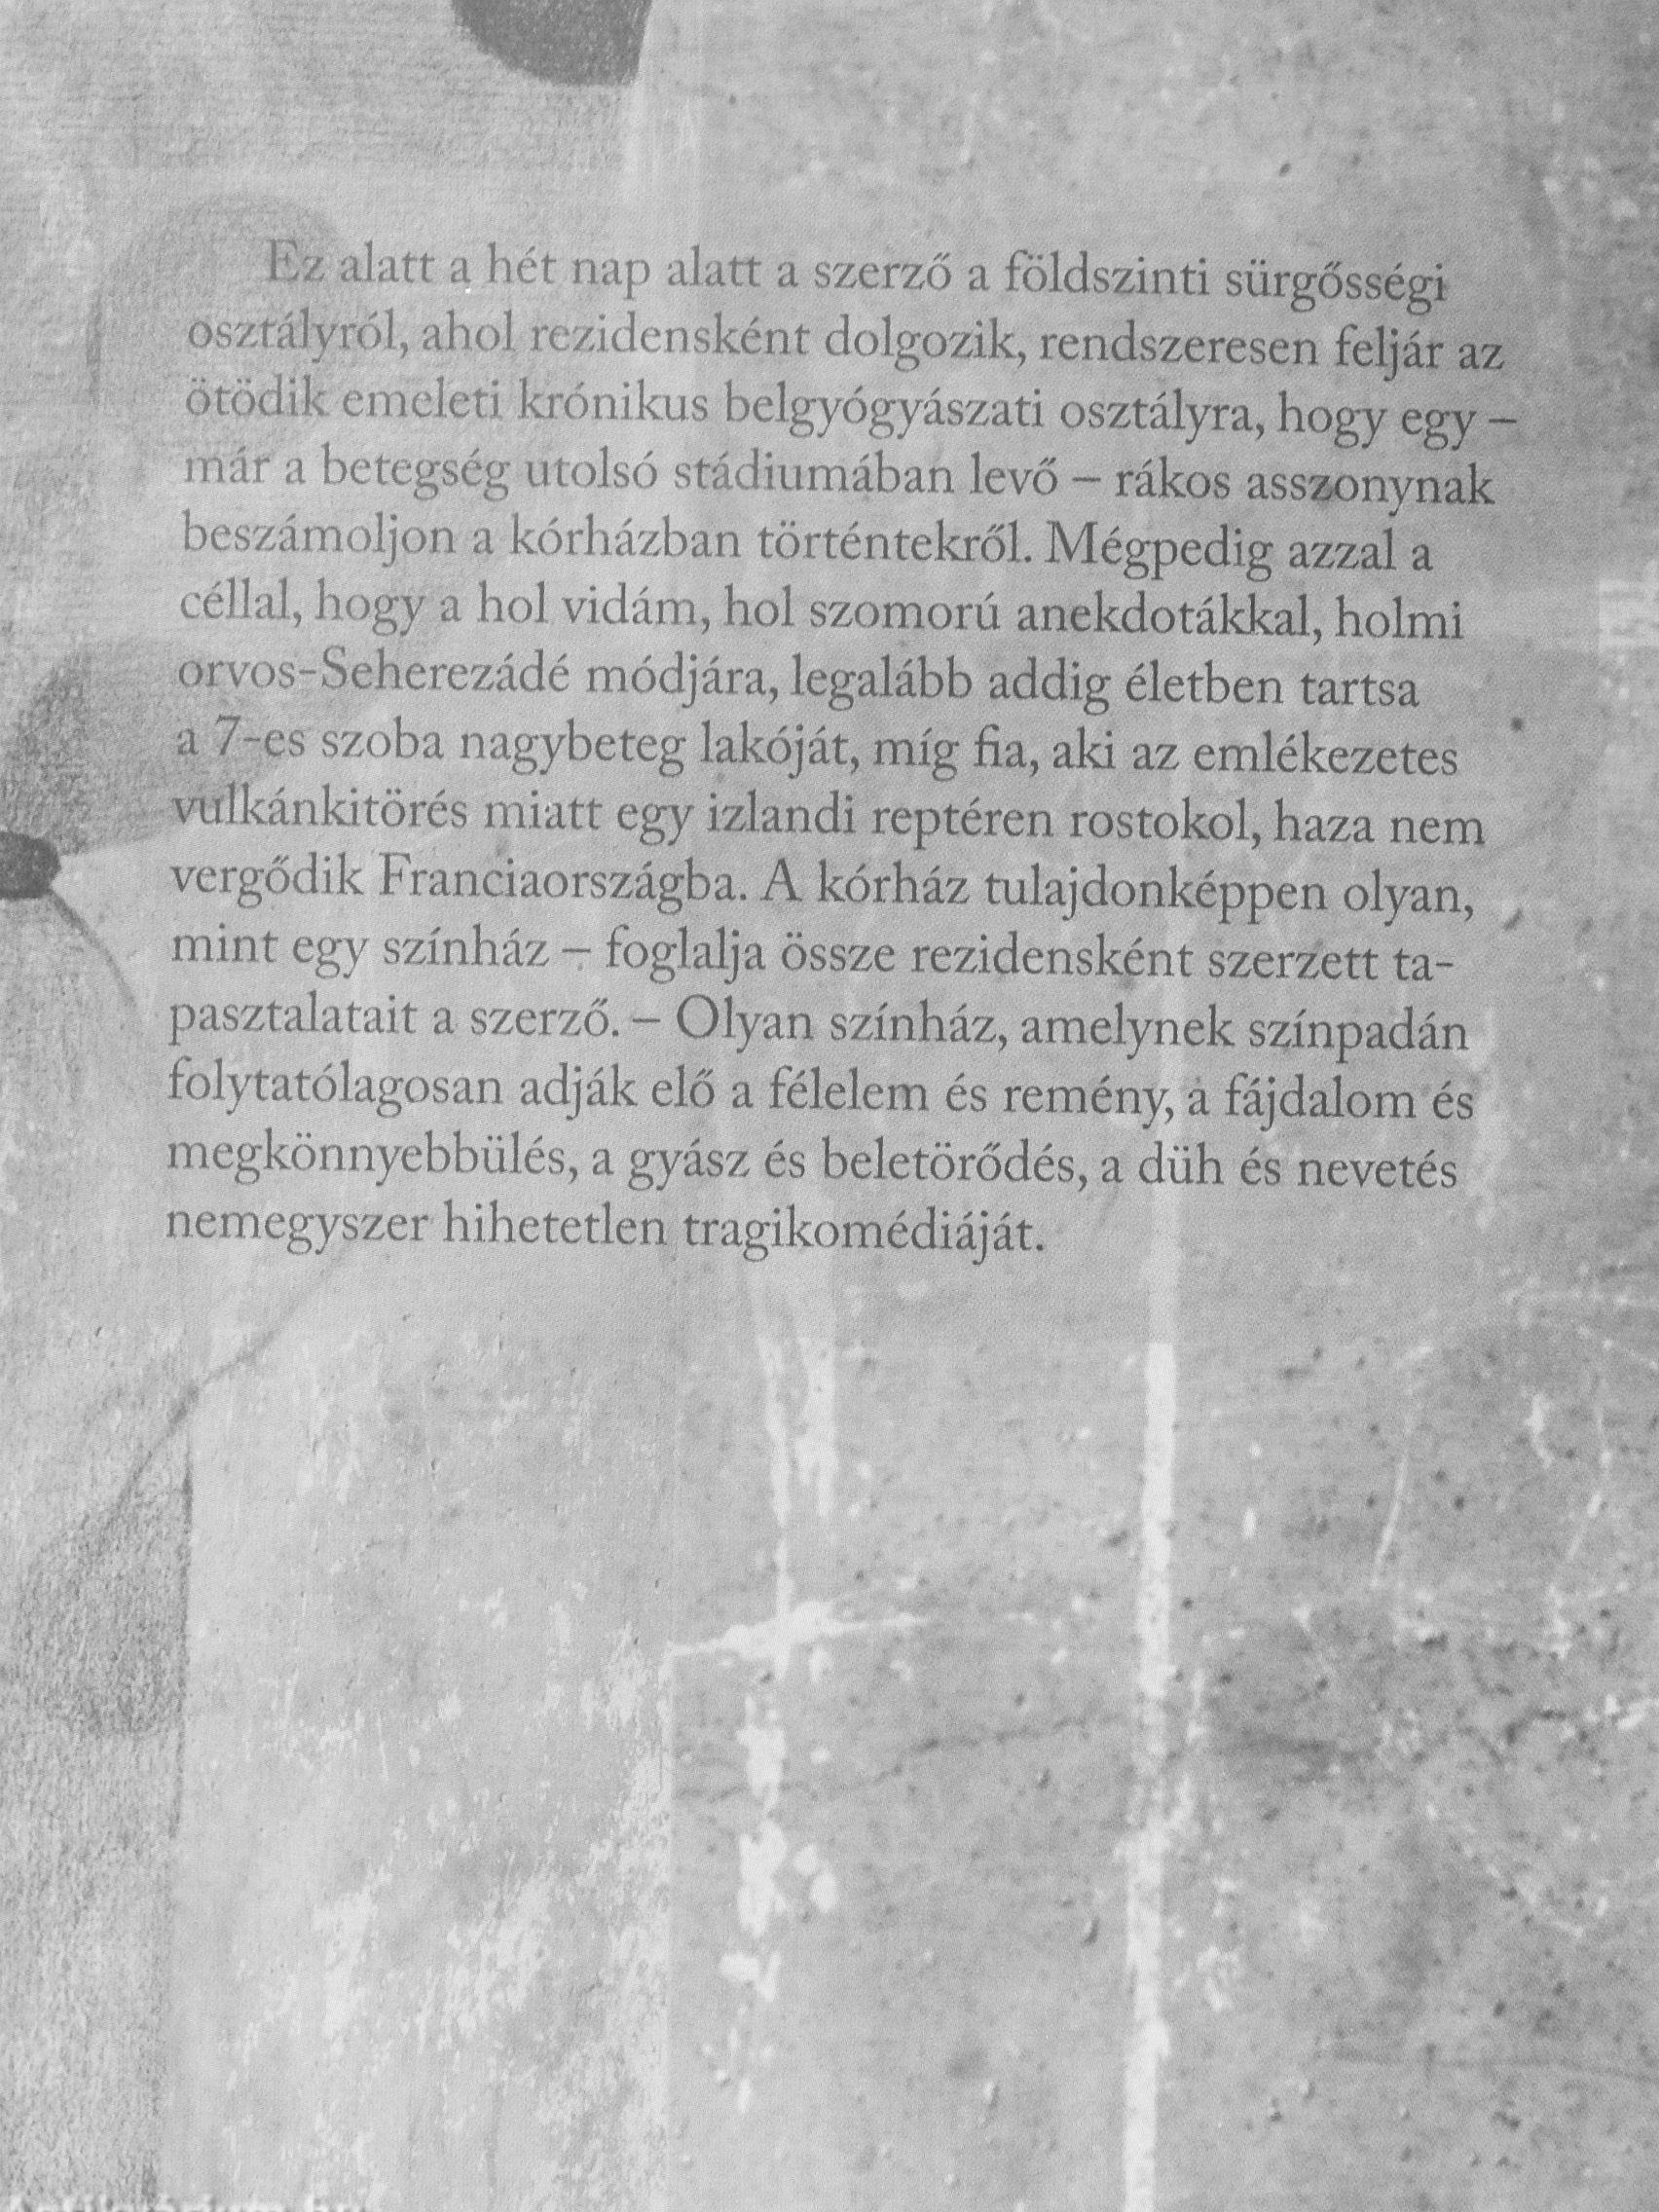 Ez alatt a hét nap alatt a szerző a földszinti sürgősségi
osztályról, ahol rezidensként dolgozik, rendszeresen feljár az
ötödik emeleti krónikus belgyógyászati osztályra, hogy egy –
már a betegség utolsó stádiumában levő – rákos asszonynak
beszámoljon a kórházban történtekről. Mégpedig azzal a
céllal, hogy a hol vidám, hol szomorú anekdotákkal, holmi
orvos-Seherezádé módjára, legalább addig életben tartsa
a 7-es szoba nagybeteg lakóját, míg fia, aki az emlékezetes
vulkánkitörés miatt egy izlandi reptéren rostokol, haza nem
vergődik Franciaországba. A kórház tulajdonképpen olyan,
mint egy színház – foglalja össze rezidensként szerzett ta-
pasztalatait a szerző. – Olyan színház, amelynek színpadán
folytatólagosan adják elő a félelem és remény, a fájdalom és
megkönnyebbülés, a gyász és beletörődés, a düh és nevetés
nemegyszer hihetetlen tragikomédiáját.